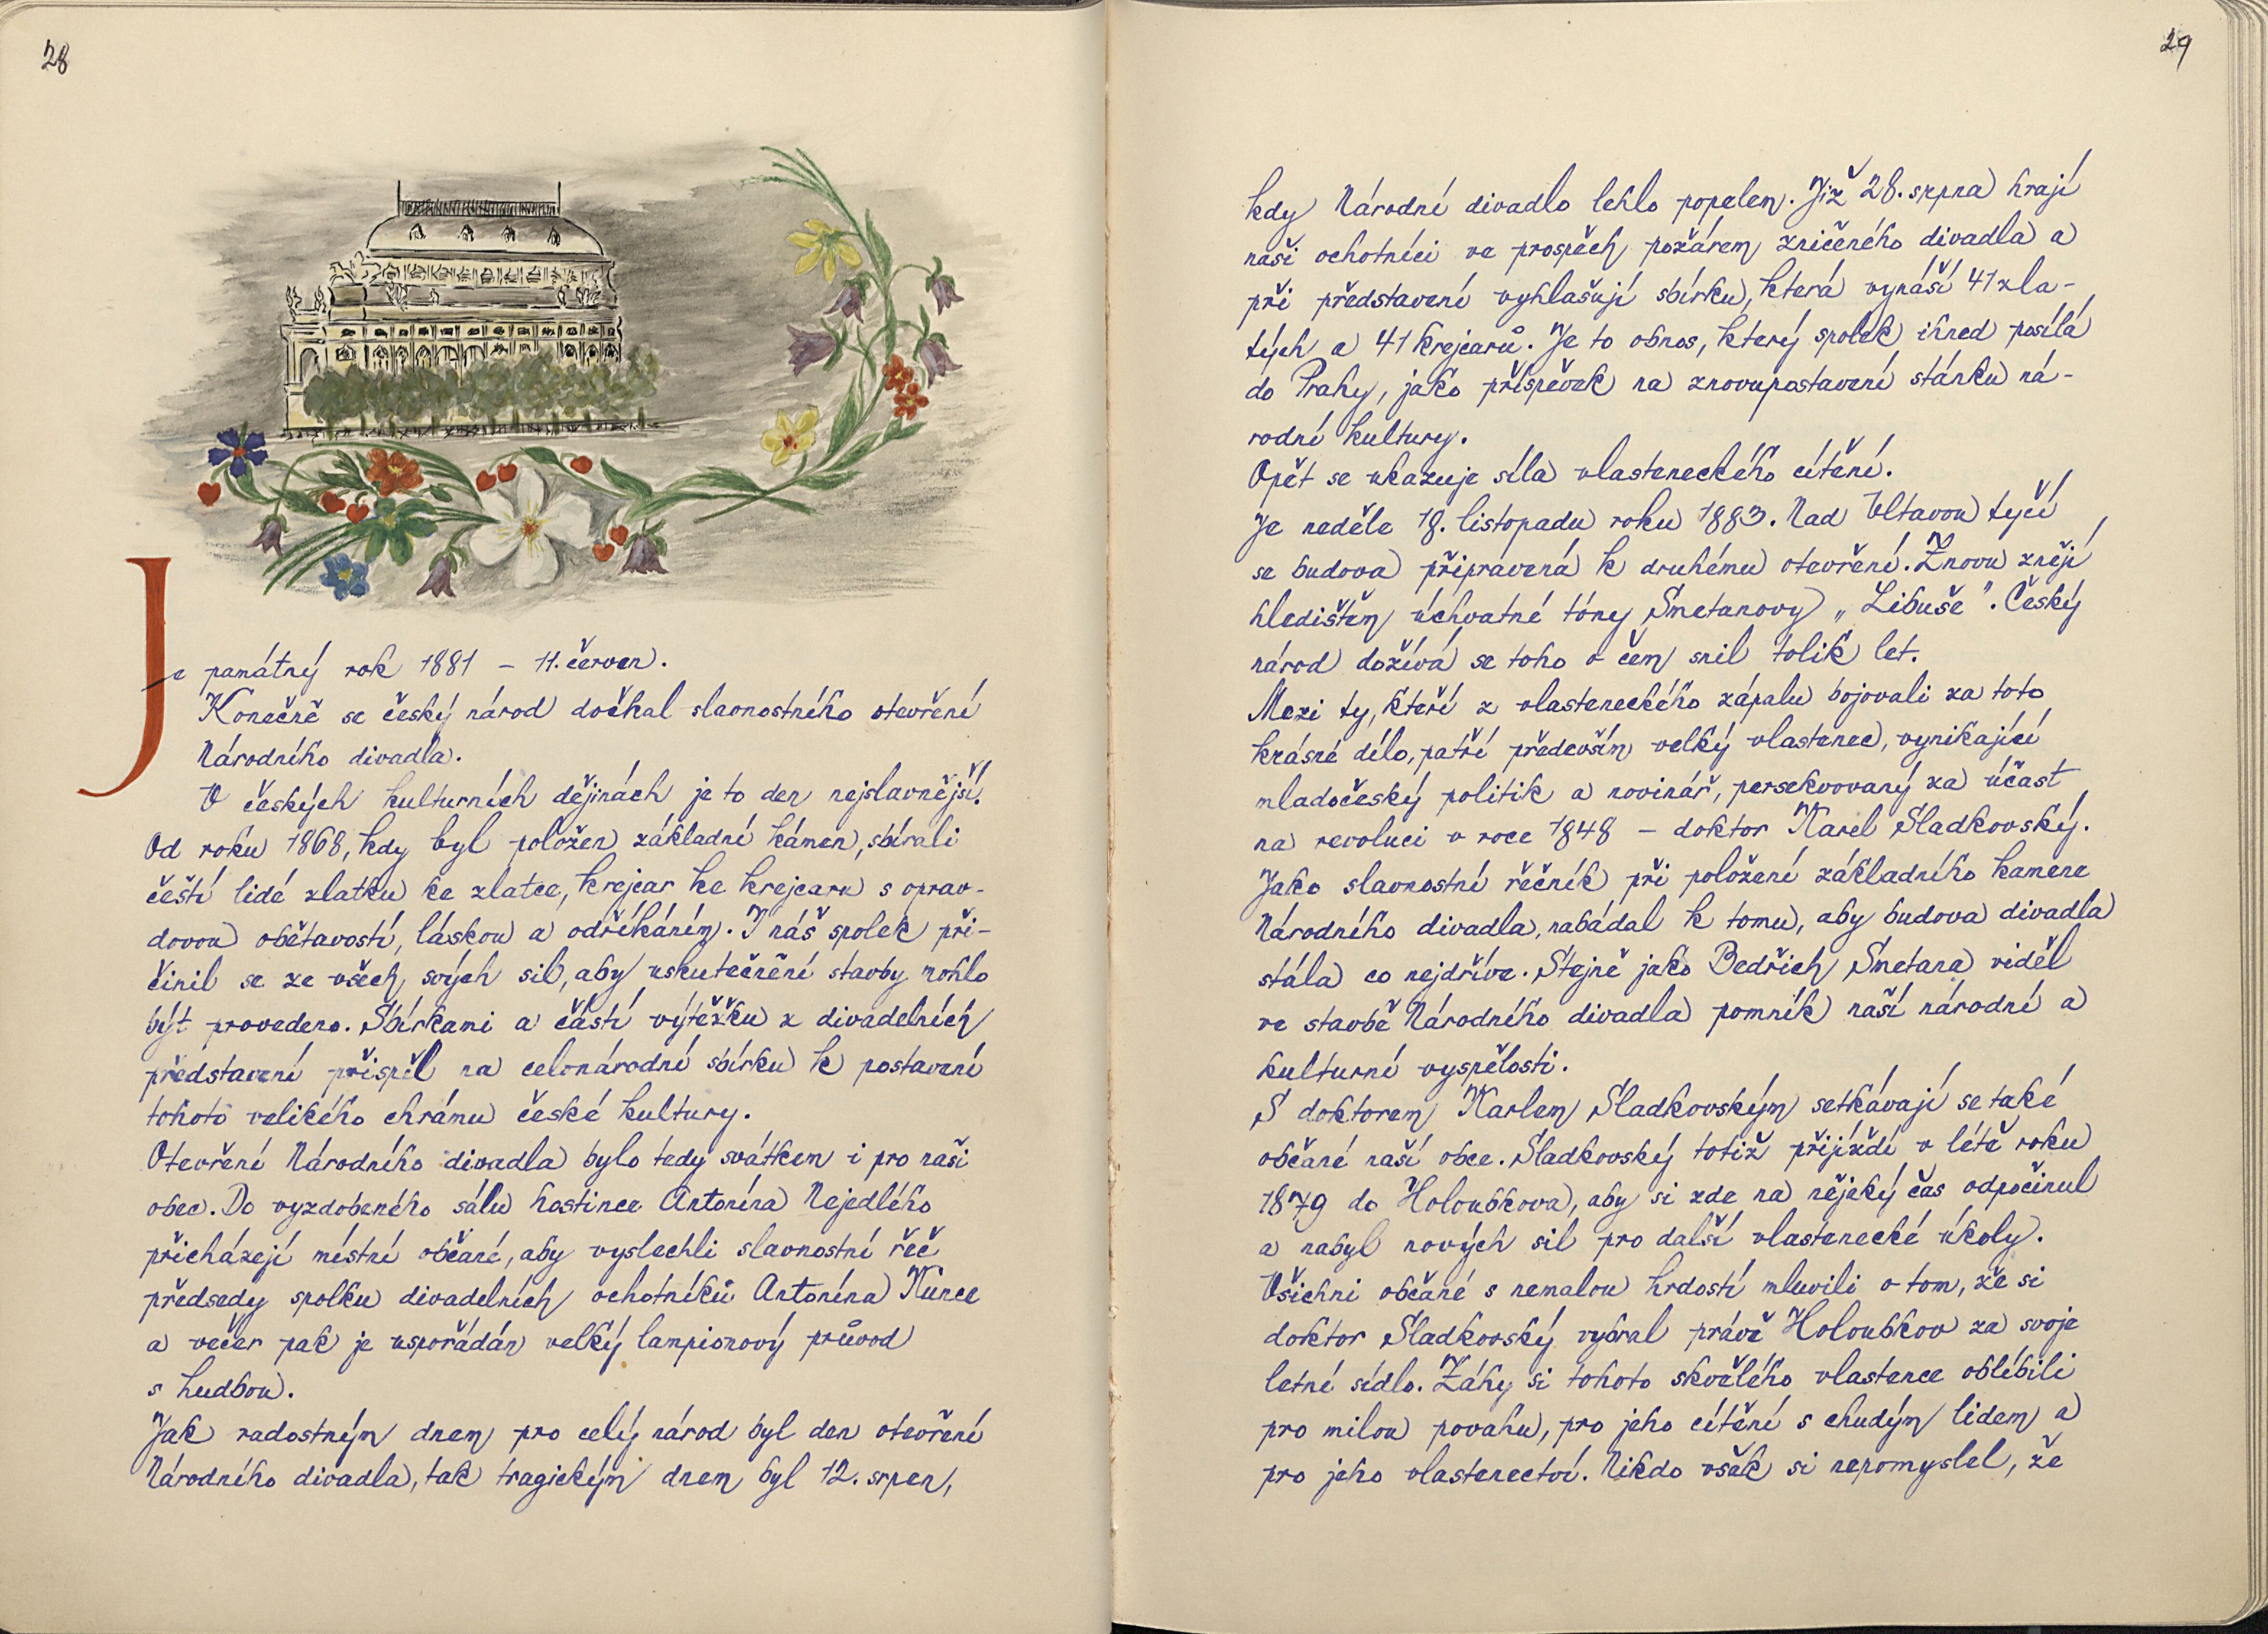 28
Je památný rok 1881 – 11. červen.
Konečně se český národ dočkal slavnostního otevření
Národního divadla.
V českých kulturních dějinách je to den nejslavnější.
Od roku 1868, kdy byl položen základní kámen, sbírali
čeští lidé zlatku ke zlatce, krejcar ke krejcaru s oprav-
dovou obětavostí, láskou a odříkáním. I náš spolek při-
činil se ze všech svých sil, aby uskutečnění stavby mohlo
být provedeno. Sbírkami a částí výtěžku z divadelních
představení přispěl na celonárodní sbírku k postavení
tohoto velikého chrámu české kultury.
Otevření Národního divadla bylo tedy svátkem i pro naši
obec. Do vyzdobeného sálu hostince Antonína Nejedlého
přicházejí místní občané, aby vyslechli slavnostní řeč
předsedy spolku divadelních ochotníků Antonína Kůnce
a večer pak je uspořádán velký lampionový průvod
s hudbou.
Jak radostným dnem pro celý národ byl den otevření
Národního divadla, tak tragickým dnem byl 12. srpen,
29
kdy Národní divadlo lehlo popelem. Již 28. srpna hrají
naši ochotníci ve prospěch požárem zničeného divadla a
při představení vyhlašují sbírku, která vynáší 41 zla-
tých a 41 krejcarů. Je to obnos, který spolek ihned posílá
do Prahy, jako příspěvek na znovupostavení stánku ná-
rodní kultury.
Opět se ukazuje síla vlasteneckého cítění.
Je neděle 18. listopadu roku 1883. Nad Vltavou tyčí
se budova připravená k druhému otevření. Znovu znějí
hledištěm úchvatné tóny Smetanovy „Libuše". Český
národ dožívá se toho o čem snil tolik let.
Mezi ty, kteří z vlasteneckého zápalu bojovali za toto
krásné dílo, patří především velký vlastenec, vynikající
mladočeský politik a novinář, persekvovaný za účast
na revoluci v roce 1848 – doktor Karel Sladkovský.
Jako slavnostní řečník při položení základního kamene
Národního divadla, nabádal k tomu, aby budova divadla
stála co nejdříve. Stejně jako Bedřich Smetana viděl
ve stavbě Národního divadla pomník naší národní a
kulturní vyspělosti.
S doktorem Karlem Sladkovským setkávají se také
občané naší obce. Sladkovský totiž přijíždí v létě roku
1879 do Holoubkova, aby si zde na nějaký čas odpočinul
a nabyl nových sil pro další vlastenecké úkoly.
Všichni občané s nemalou hrdostí mluvili o tom, že si
doktor Sladkovský vybral právě Holoubkov za svoje
letní sídlo. Záhy si tohoto skvělého vlastence oblíbili
pro milou povahu, pro jeho cítění s chudým lidem a
pro jeho vlastenectví. Nikdo však si nepomyslel, že